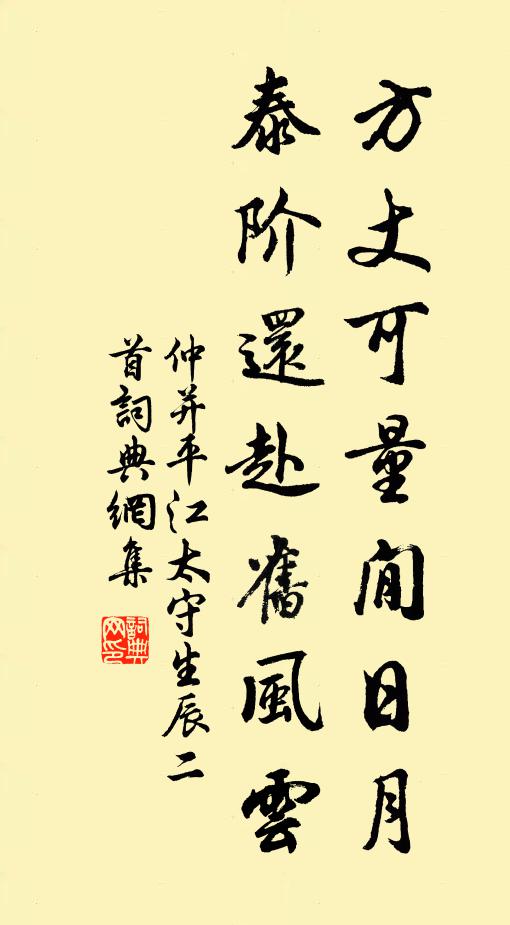 方丈可量閒日月
泰阶還赴舊風雲
仲并平江太守生辰二
首詞典網集
詞典
网印